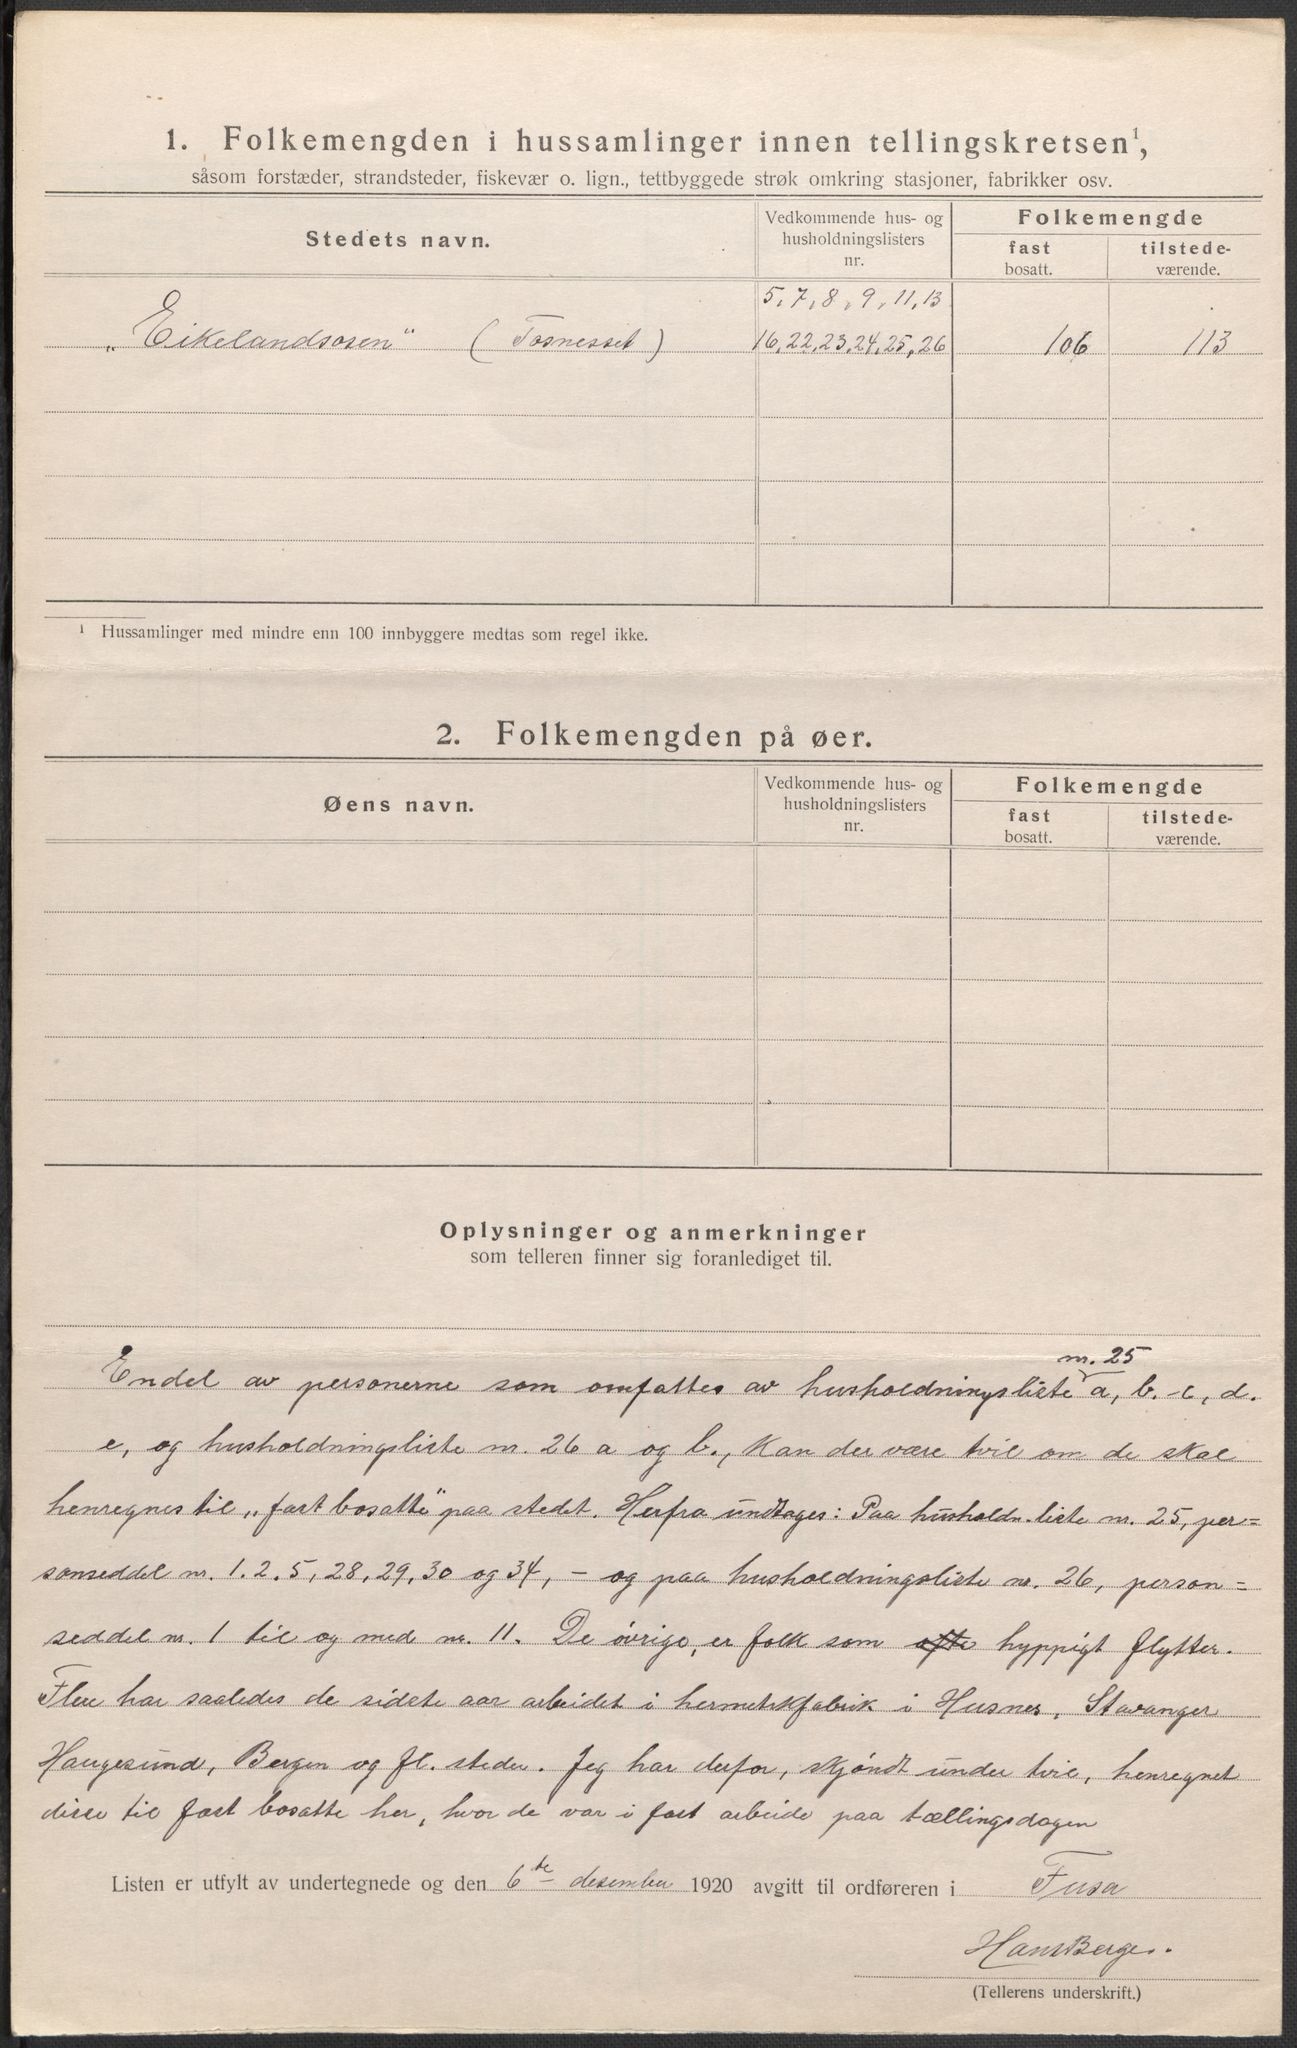 1. Folkemengden i hussamlinger innen tellingskretsen¹,
såsom forstæder, strandsteder, fiskevær o. lign., tettbyggede strøk omkring stasjoner, fabrikker osv.
Stedets navn.
Vedkommende hus- og
husholdningslisters
nr.
Folkemengde
fast
bosatt.
tilstede-
værende.
5, 7, 8, 9, 11, 13
„Eikelandsosen" (Tosnesset) 16, 22, 23, 24, 25, 26 106 113
¹ Hussamlinger med mindre enn 100 innbyggere medtas som regel ikke.
2. Folkemengden på øer.
Øens navn.
Vedkommende hus- og
husholdningslisters
nr.
Folkemengde
fast
bosatt.
tilstede-
værende.
Oplysninger og anmerkninger
som telleren finner sig foranlediget til.
nr. 25
Endel av personerne som omfattes av husholdningsliste a, b. c, d.
e, og husholdningsliste nr. 26 a og b., kan der være tvil om de skal
henregnes til „fast bosatte" paa stedet. Herfra undtages: Paa husholdn.liste nr. 25, per=
sonseddel nr. 1. 2. 5, 28, 29, 30 og 34, – og paa husholdningsliste nr. 26, person=
seddel nr. 1 til og med nr. 11. De øvrige, er folk som ofte hyppigt flytter.
Flere har saaledes de sidste aar arbeidet i hermetikfabrik i Husnes, Stavanger
Haugesund, Bergen og fl. steder. Jeg har derfor, skjøndt under tvil, henregnet
disse til fast bosatte her, hvor de var i fast arbeide paa tællingsdagen
Listen er utfylt av undertegnede og den 6te desember 1920 avgitt til ordføreren i Fusa
Hans Berge.
(Tellerens underskrift.)